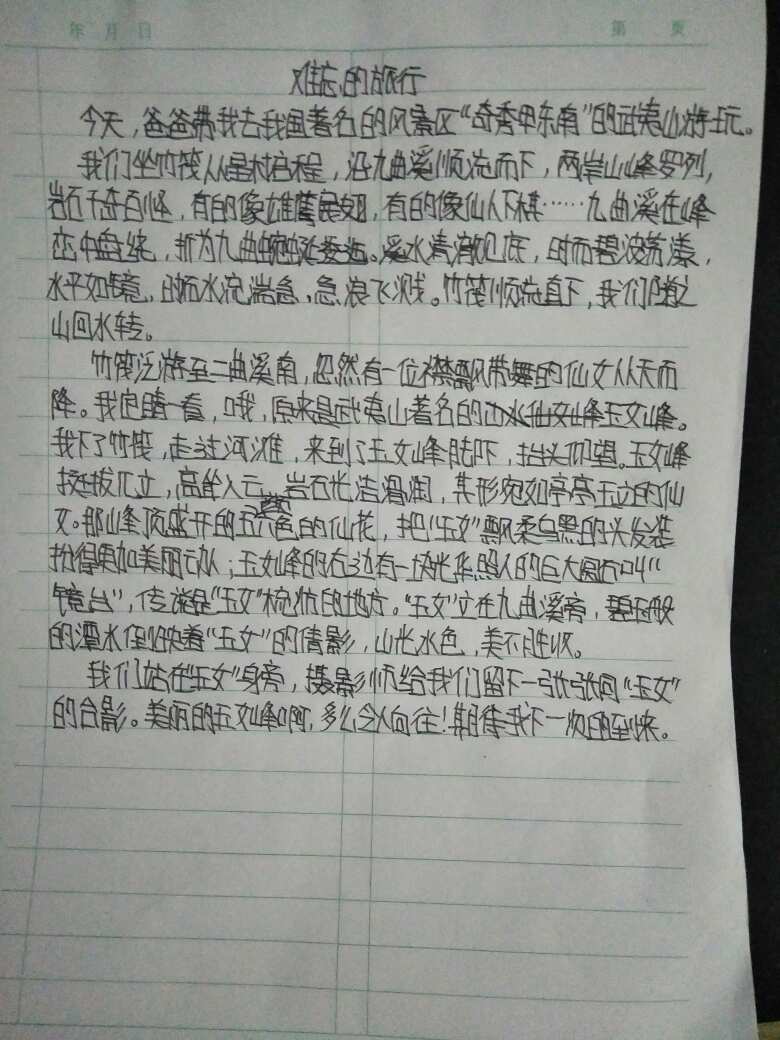 年 月 日 第 页
难忘的旅行
今天，爸爸带我去我国著名的风景区“奇秀甲东南”的武夷山游玩。
我们坐竹筏从星村启程，沿九曲溪顺流而下，两岸山峰罗列，
岩石千奇百怪，有的像雄鹰展翅，有的像仙人下棋……九曲溪在峰
峦中盘绕，折为九曲蜿蜒委迤。溪水清澈见底，时而碧波荡漾，
水平如镜，时而水流湍急，急浪飞溅。竹筏顺流直下，我们随之
山回水转。
竹筏泛游至二曲溪南，忽然有一位襟飘带舞的仙女从天而
降。我定睛一看，哦，原来是武夷山著名的玉女峰。
我下了竹筏，走过河滩，来到了玉女峰脚下，抬头仰望。玉女峰
挺拔兀立，高耸入云，岩石光洁滑润，其形宛如亭亭玉立的仙
女。那峰顶盛开的五颜六色的仙花，把“玉女”飘柔乌黑的头发装
扮得更加美丽动人；玉女峰的右边有一块光华照人的巨大圆石叫“
镜台”，传说是“玉女”梳妆的地方。“玉女”立在九曲溪旁，碧玉般
的潭水倒映着“玉女”的倩影，山光水色，美不胜收。
我们站在“玉女”身旁，摄影师给我们留下一张张同“玉女”
的合影。美丽的玉女峰啊，多么令人向往！期待我下一次的到来。